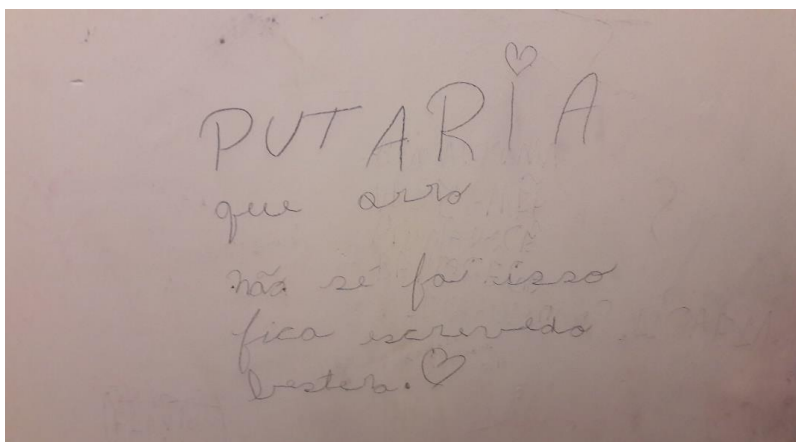 PUTARIA
que orro
não se fas isso
fica escrevedo
bestera.